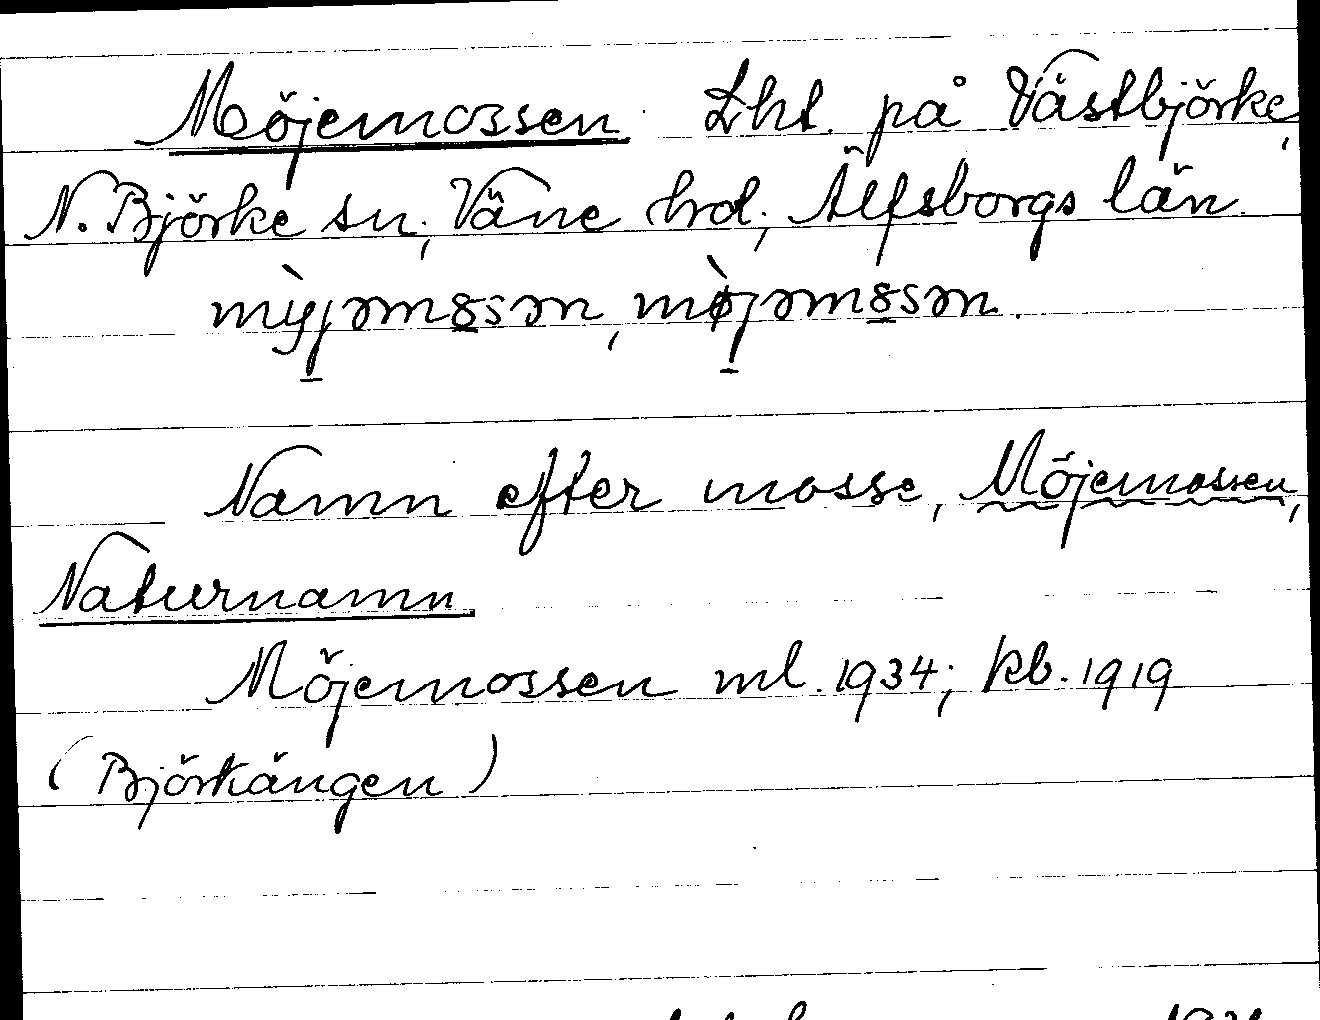 Möjemossen Lht. på Västbjörke,
N. Björke sn, Väne hd, Älfsborgs län.
mỳjəm8sən, mø̀jəm8sən.
Namn efter mosse, Möjemossen,
Naturnamn
Möjemossen ml. 1934; kb. 1919
(Björkängen)